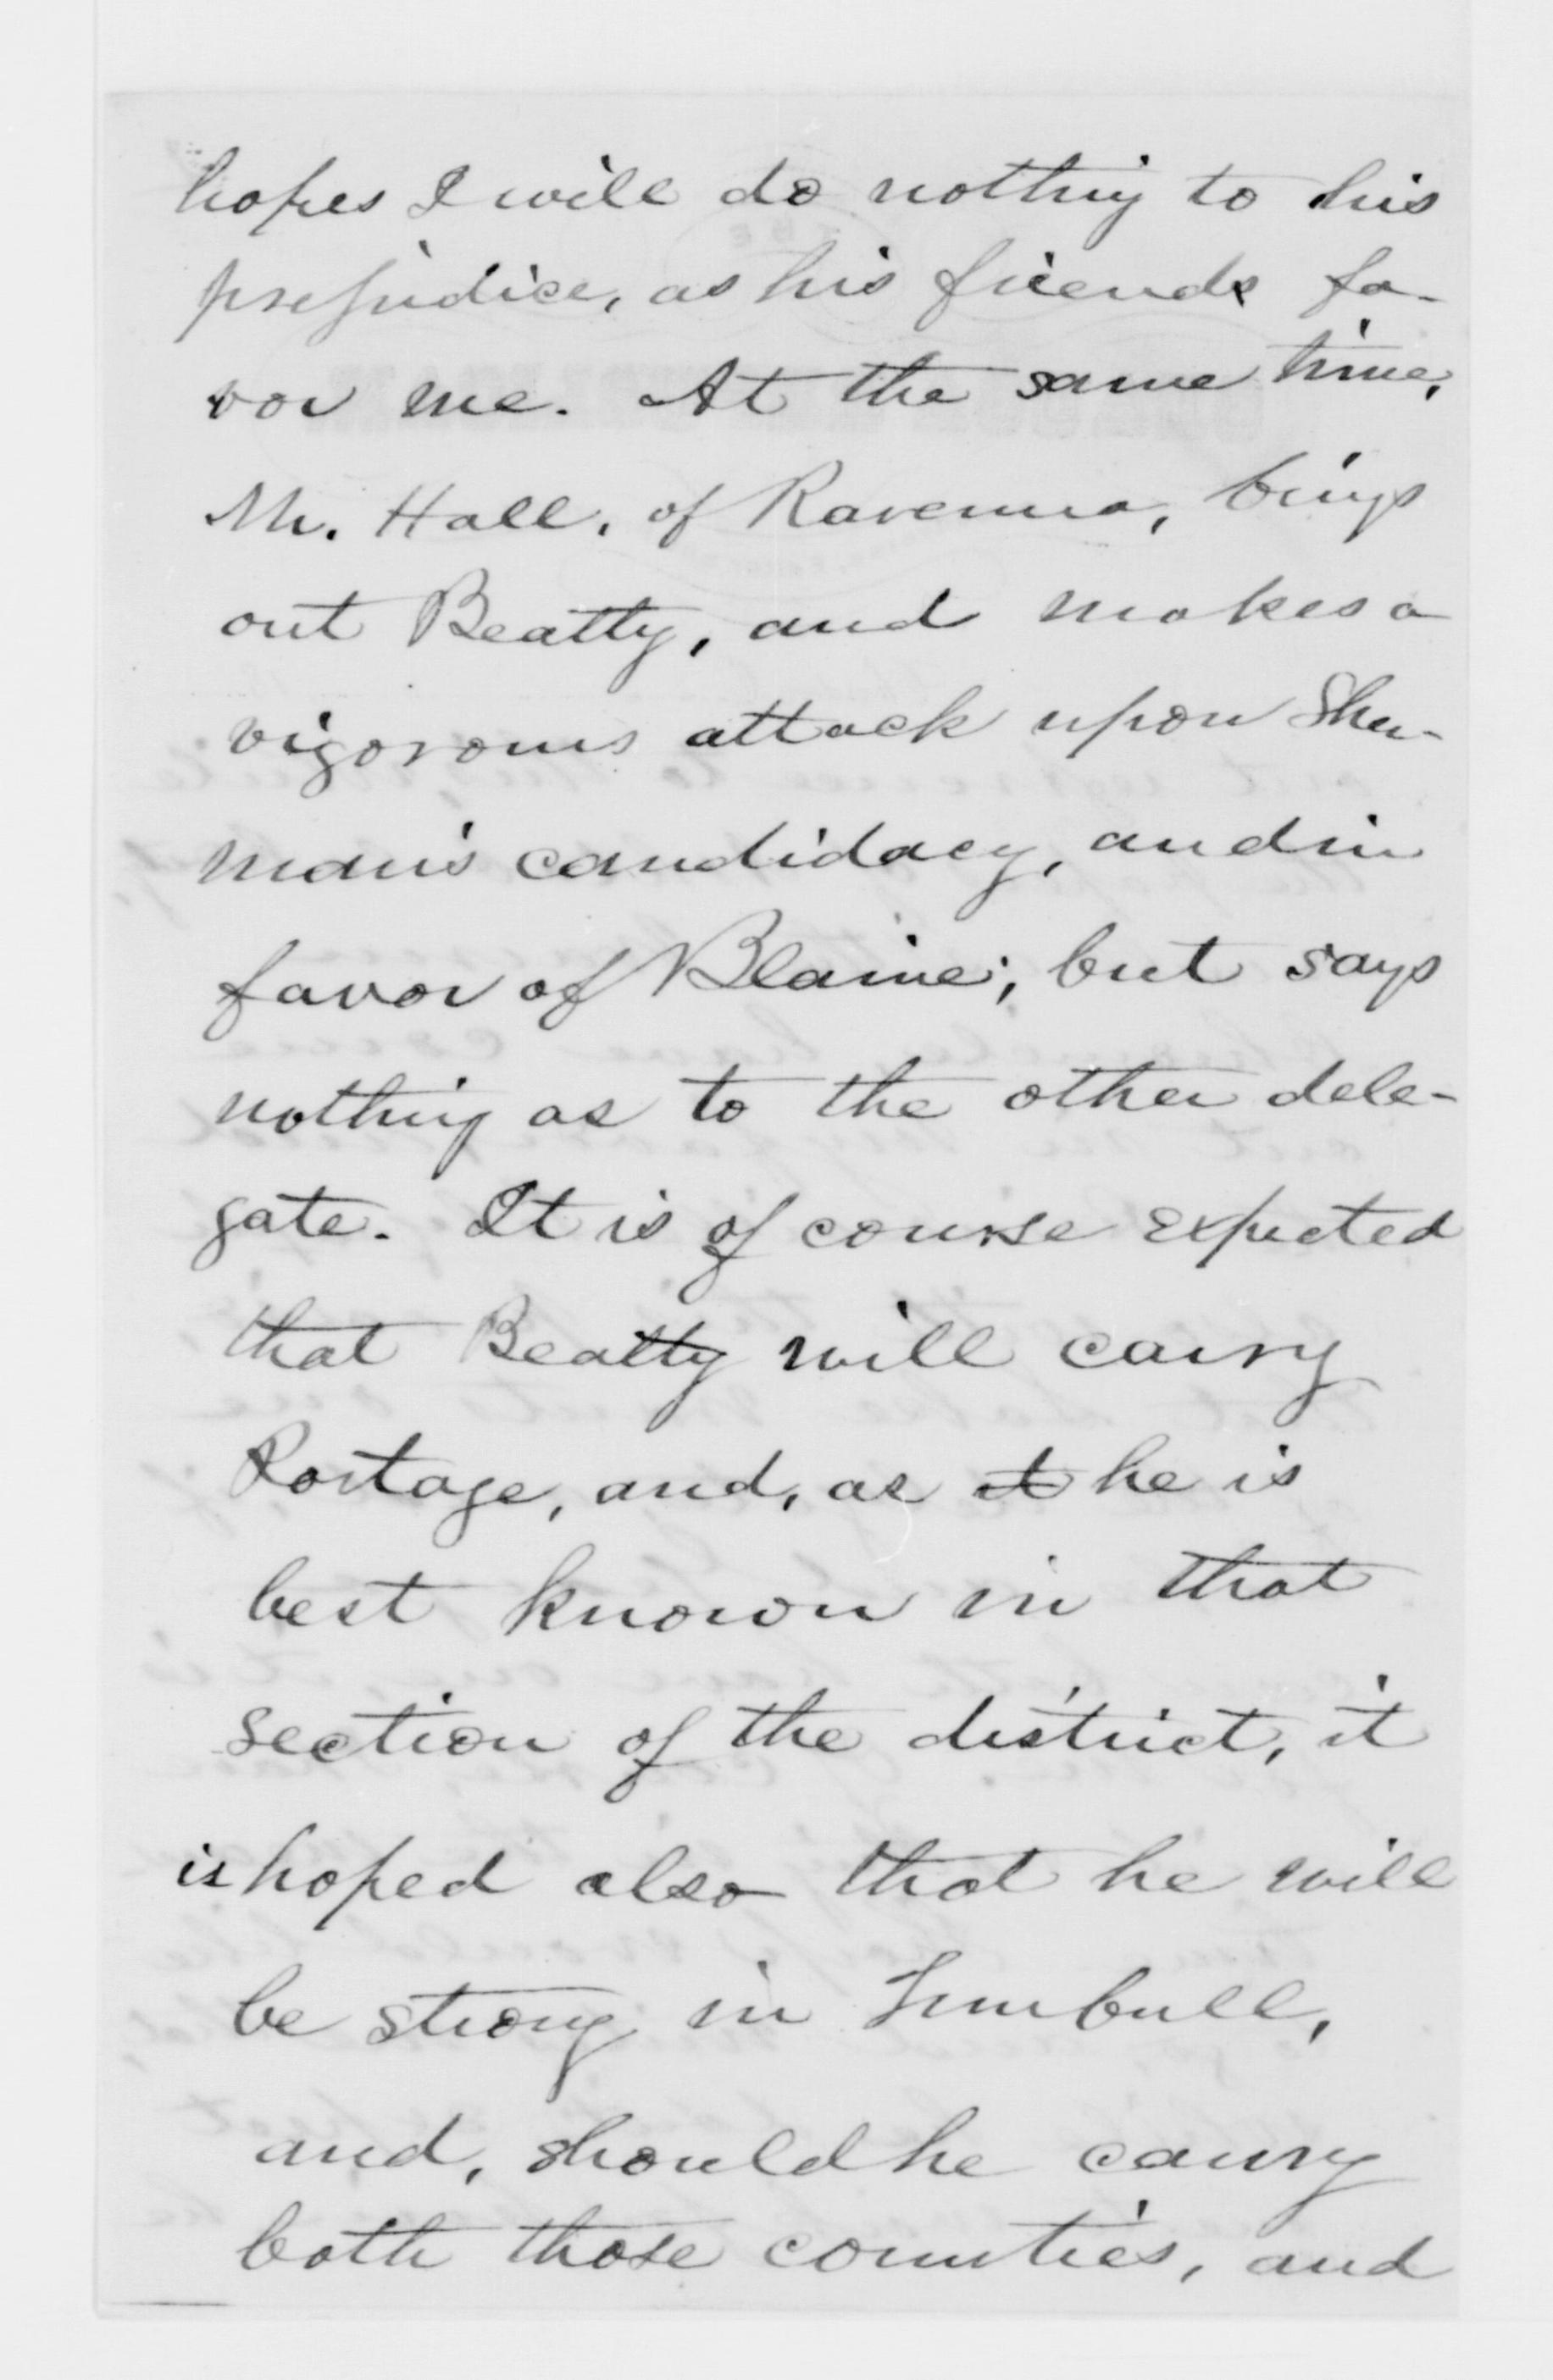 hopes I will do nothing to his
prejudice, as his friends fa-
vor me. At the same time,
Mr. Hall, of Ravenna, brings
out Beatty, and makes a
vigorous attack upon Sher-
man's candidacy, and in
favor of Blaine; but says
nothing as to the other dele-
gate. It is of course expected
that Beatty will carry
Portage, and, as it he is
best known in that
section of the district, it
is hoped also that he will
be strong in Trumbull,
and, should he carry
both those counties, and